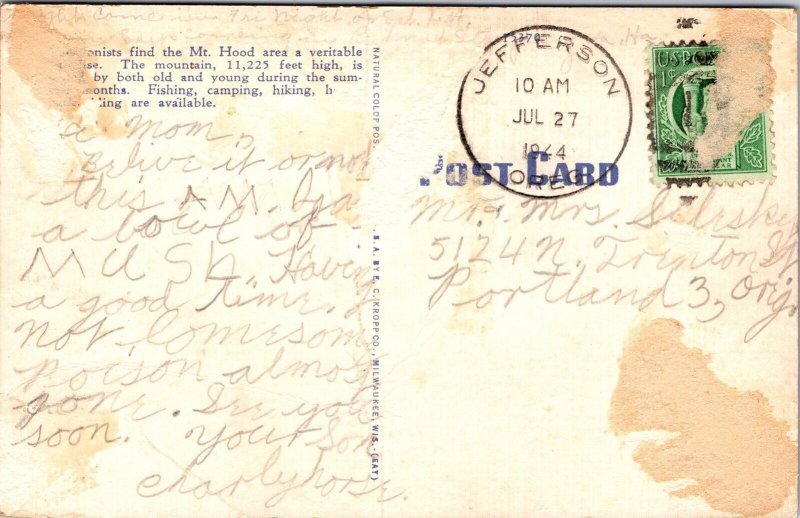 Night
12370
onists find the Mt. Hood area a veritable
se. The mountain, 11,225 feet high, is
by both old and young during the sum-
onths. Fishing, camping, hiking, h
ding are available.
NATURAL COLOR POS.
S. A. BY E. C. KROPP CO., MILWAUKEE, WIS. (EAT)
JEFFERSON
10 AM
JUL 27
1944
OREG
1¢
POST CARD
Mom,
elive it or not
this A.M.
a bowl of
MUSH. Having
a good time.
not lonesom
Poison almos
gone. See you
soon. your Son
charlyhorse.
Mr. + Mrs.
5124 N. Trenton St
Portland 3, Orig